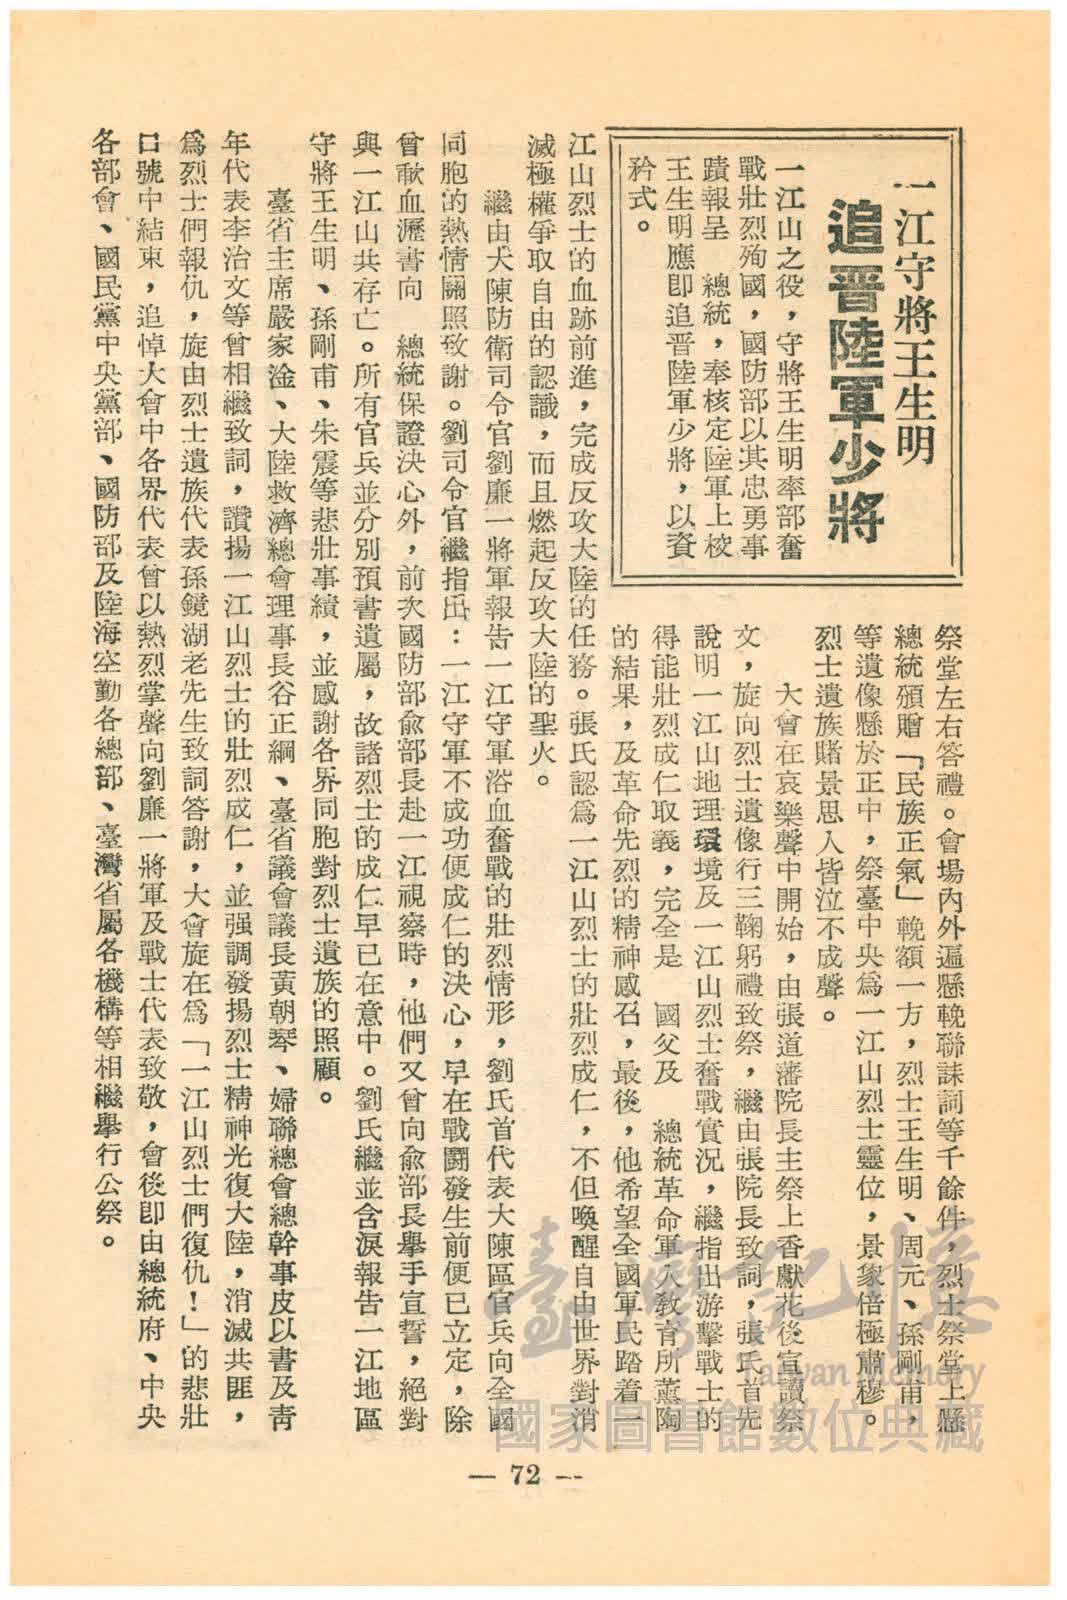 一江守將王生明
追晋陸軍少將
一江山之役，守將王生明率部奮
戰壯烈殉國，國防部以其忠勇事
蹟報呈　總統，奉核定陸軍上校
王生明應卽追晋陸軍少將，以資
矜式。
祭堂左右答禮。會場內外遍懸輓聯誄詞等千餘件，烈士祭堂上懸
總統頒贈「民族正氣」輓額一方，烈士王生明、周元、孫剛甫，
等遺像懸於正中，祭臺中央爲一江山烈士靈位，景象倍極肅穆。
烈士遺族賭景思人皆泣不成聲。
大會在哀樂聲中開始，由張道藩院長主祭上香獻花後宣讀祭
文，旋向烈士遺像行三鞠躬禮致祭，繼由張院長致詞，張氏首先
說明一江山地理環境及一江山烈士奮戰實況，繼指出游擊戰士的
得能壯烈成仁取義，完全是　國父及　總統革命軍人敎育所薰陶
的結果，及革命先烈的精神感召，最後，他希望全國軍民踏着一
江山烈士的血跡前進，完成反攻大陸的任務。張氏認爲一江山烈士的壯烈成仁，不但喚醒自由世界對消
滅極權爭取自由的認識，而且燃起反攻大陸的聖火。
繼由大陳防衛司令官劉廉一將軍報告一江守軍浴血奮戰的壯烈情形，劉氏首代表大陳區官兵向全國
同胞的熱情關照致謝。劉司令官繼指出：一江守軍不成功便成仁的決心，早在戰鬪發生前便已立定，除
曾歃血瀝書向　總統保證決心外，前次國防部兪部長赴一江視察時，他們又曾向兪部長舉手宣誓，絕對
與一江山共存亡。所有官兵並分別預書遺屬，故諸烈士的成仁早已在意中。劉氏繼並含淚報告一江地區
守將王生明、孫剛甫、朱震等悲壯事績，並感謝各界同胞對烈士遺族的照顧。
臺省主席嚴家淦、大陸救濟總會理事長谷正綱、臺省議會議長黃朝琴、婦聯總會總幹事皮以書及靑
年代表李治文等曾相繼致詞，讚揚一江山烈士的壯烈成仁，並强調發揚烈士精神光復大陸，消滅共匪，
爲烈士們報仇，旋由烈士遺族代表孫鏡湖老先生致詞答謝，大會旋在爲「一江山烈士們復仇！」的悲壯
口號中結束，追悼大會中各界代表曾以熱烈掌聲向劉廉一將軍及戰士代表致敬，會後卽由總統府、中央
各部會、國民黨中央黨部、國防部及陸海空勤各總部、臺灣省屬各機構等相繼舉行公祭。
臺灣記憶
Taiwan Memory
國家圖書館數位典藏
— 72 —